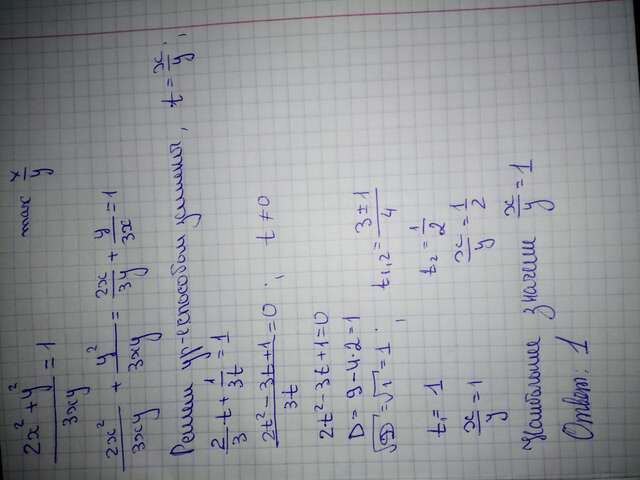 (2x² + y²)/(3xy) = 1 max x/y
2x²/(3xy) + y²/(3xy) = 2x/(3y) + y/(3x) = 1
Решим ур-е способом замены, t = x/y;
2/3 t + 1/(3t) = 1
(2t² - 3t + 1)/(3t) = 0; t ≠ 0
2t² - 3t + 1 = 0
D = 9 - 4·2 = 1
√D = √1 = 1; t₁,₂ = (3 ± 1)/4
t₁ = 1 t₂ = 1/2
x/y = 1 x/y = 1/2
Наибольшее значение x/y = 1
Ответ: 1